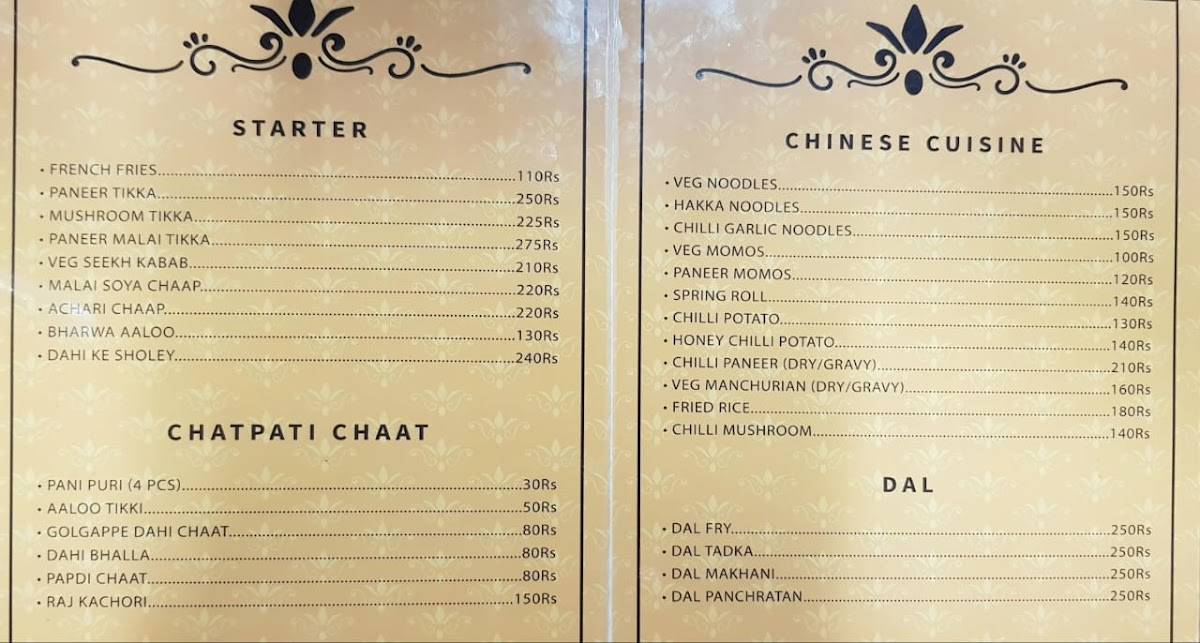 STARTER
• FRENCH FRIES....................110Rs
• PANEER TIKKA....................250Rs
• MUSHROOM TIKKA....................225Rs
• PANEER MALAI TIKKA....................275Rs
• VEG SEEKH KABAB....................210Rs
• MALAI SOYA CHAAP....................220Rs
• ACHARI CHAAP....................220Rs
• BHARWA AALOO....................130Rs
• DAHI KE SHOLEY....................240Rs
CHATPATI CHAAT
• PANI PURI (4 PCS)....................30Rs
• AALOO TIKKI....................50Rs
• GOLGAPPE DAHI CHAAT....................80Rs
• DAHI BHALLA....................80Rs
• PAPDI CHAAT....................80Rs
• RAJ KACHORI....................150Rs
CHINESE CUISINE
• VEG NOODLES....................150Rs
• HAKKA NOODLES....................150Rs
• CHILLI GARLIC NOODLES....................150Rs
• VEG MOMOS....................100Rs
• PANEER MOMOS....................120Rs
• SPRING ROLL....................140Rs
• CHILLI POTATO....................130Rs
• HONEY CHILLI POTATO....................140Rs
• CHILLI PANEER (DRY/GRAVY)....................210Rs
• VEG MANCHURIAN (DRY/GRAVY)....................160Rs
• FRIED RICE....................180Rs
• CHILLI MUSHROOM....................140Rs
DAL
• DAL FRY....................250Rs
• DAL TADKA....................250Rs
• DAL MAKHANI....................250Rs
• DAL PANCHRATAN....................250Rs